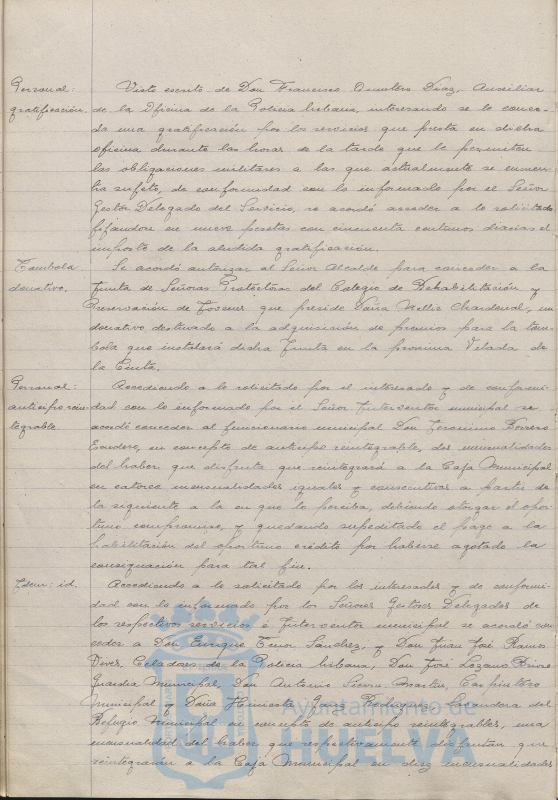 Personal: Visto escrito de Don Francisco Díaz, Auxiliar
gratificación. de la Oficina de la Policía Urbana, interesando se le conce-
da una gratificación por los servicios que presta en dicha
oficina durante las horas de la tarde que le permiten
las obligaciones militares a las que actualmente se encuen-
tra sujeto, de conformidad con lo informado por el Señor
Gestor Delegado del Servicio, se acordó acceder a lo solicitado
fijandose en nueve pesetas con cincuenta centimos diarias el
importe de la aludida gratificación.
Tombola Se acordó autorizar al Señor Alcalde para conceder a la
donativo. Junta de Señoras Protectoras del Colegio de Rehabilitación y
Preservación de Jovenes que preside Doña Nellie, un
donativo destinado a la adquisición de premios para la tom-
bola que instalará dicha Junta en la proxima Velada de
la Cinta.
Personal: Accediendo a lo solicitado por el interesado y de conformi-
anticipo rein- dad con lo informado por el Señor Interventor municipal se
tegrable. acordó conceder al funcionario municipal Don Jeronimo Borrero
en concepto de anticipo reintegrable, dos mensualidades
del haber que disfruta que reintegrará a la Caja Municipal
en catorce mensualidades iguales y consecutivas a partir de
la siguiente a la en que lo perciba, debiendo otorgar el opor-
tuno compromiso, y quedando supeditado el pago a la
habilitación del oportuno crédito por haberse agotado la
consignación para tal fin.
Idem: id. Accediendo a lo solicitado por los interesados y de conformi-
dad con lo informado por los Señores Gestores Delegados de
los respectivos servicios é Interventor municipal se acordó con-
ceder a Don Enrique Tenor Sanchez, y Don Juan José Ramos
Celadores de la Policía Urbana, Don José Lozano
Guardia Municipal, Don Antonio Martin, Carpintero
Municipal y Doña Garcia Lavandera del
Refugio Municipal en concepto de anticipo reintegrables, una
mensualidad del haber que respectivamente disfrutan que
reintegrarán a la Caja Municipal en diez mensualidades
Ayuntamiento de
HUELVA